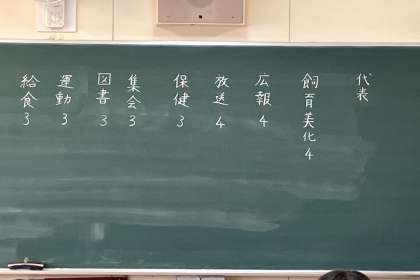 代表
飼育美化4
広報4
放送4
保健3
集会3
図書3
運動3
給食3